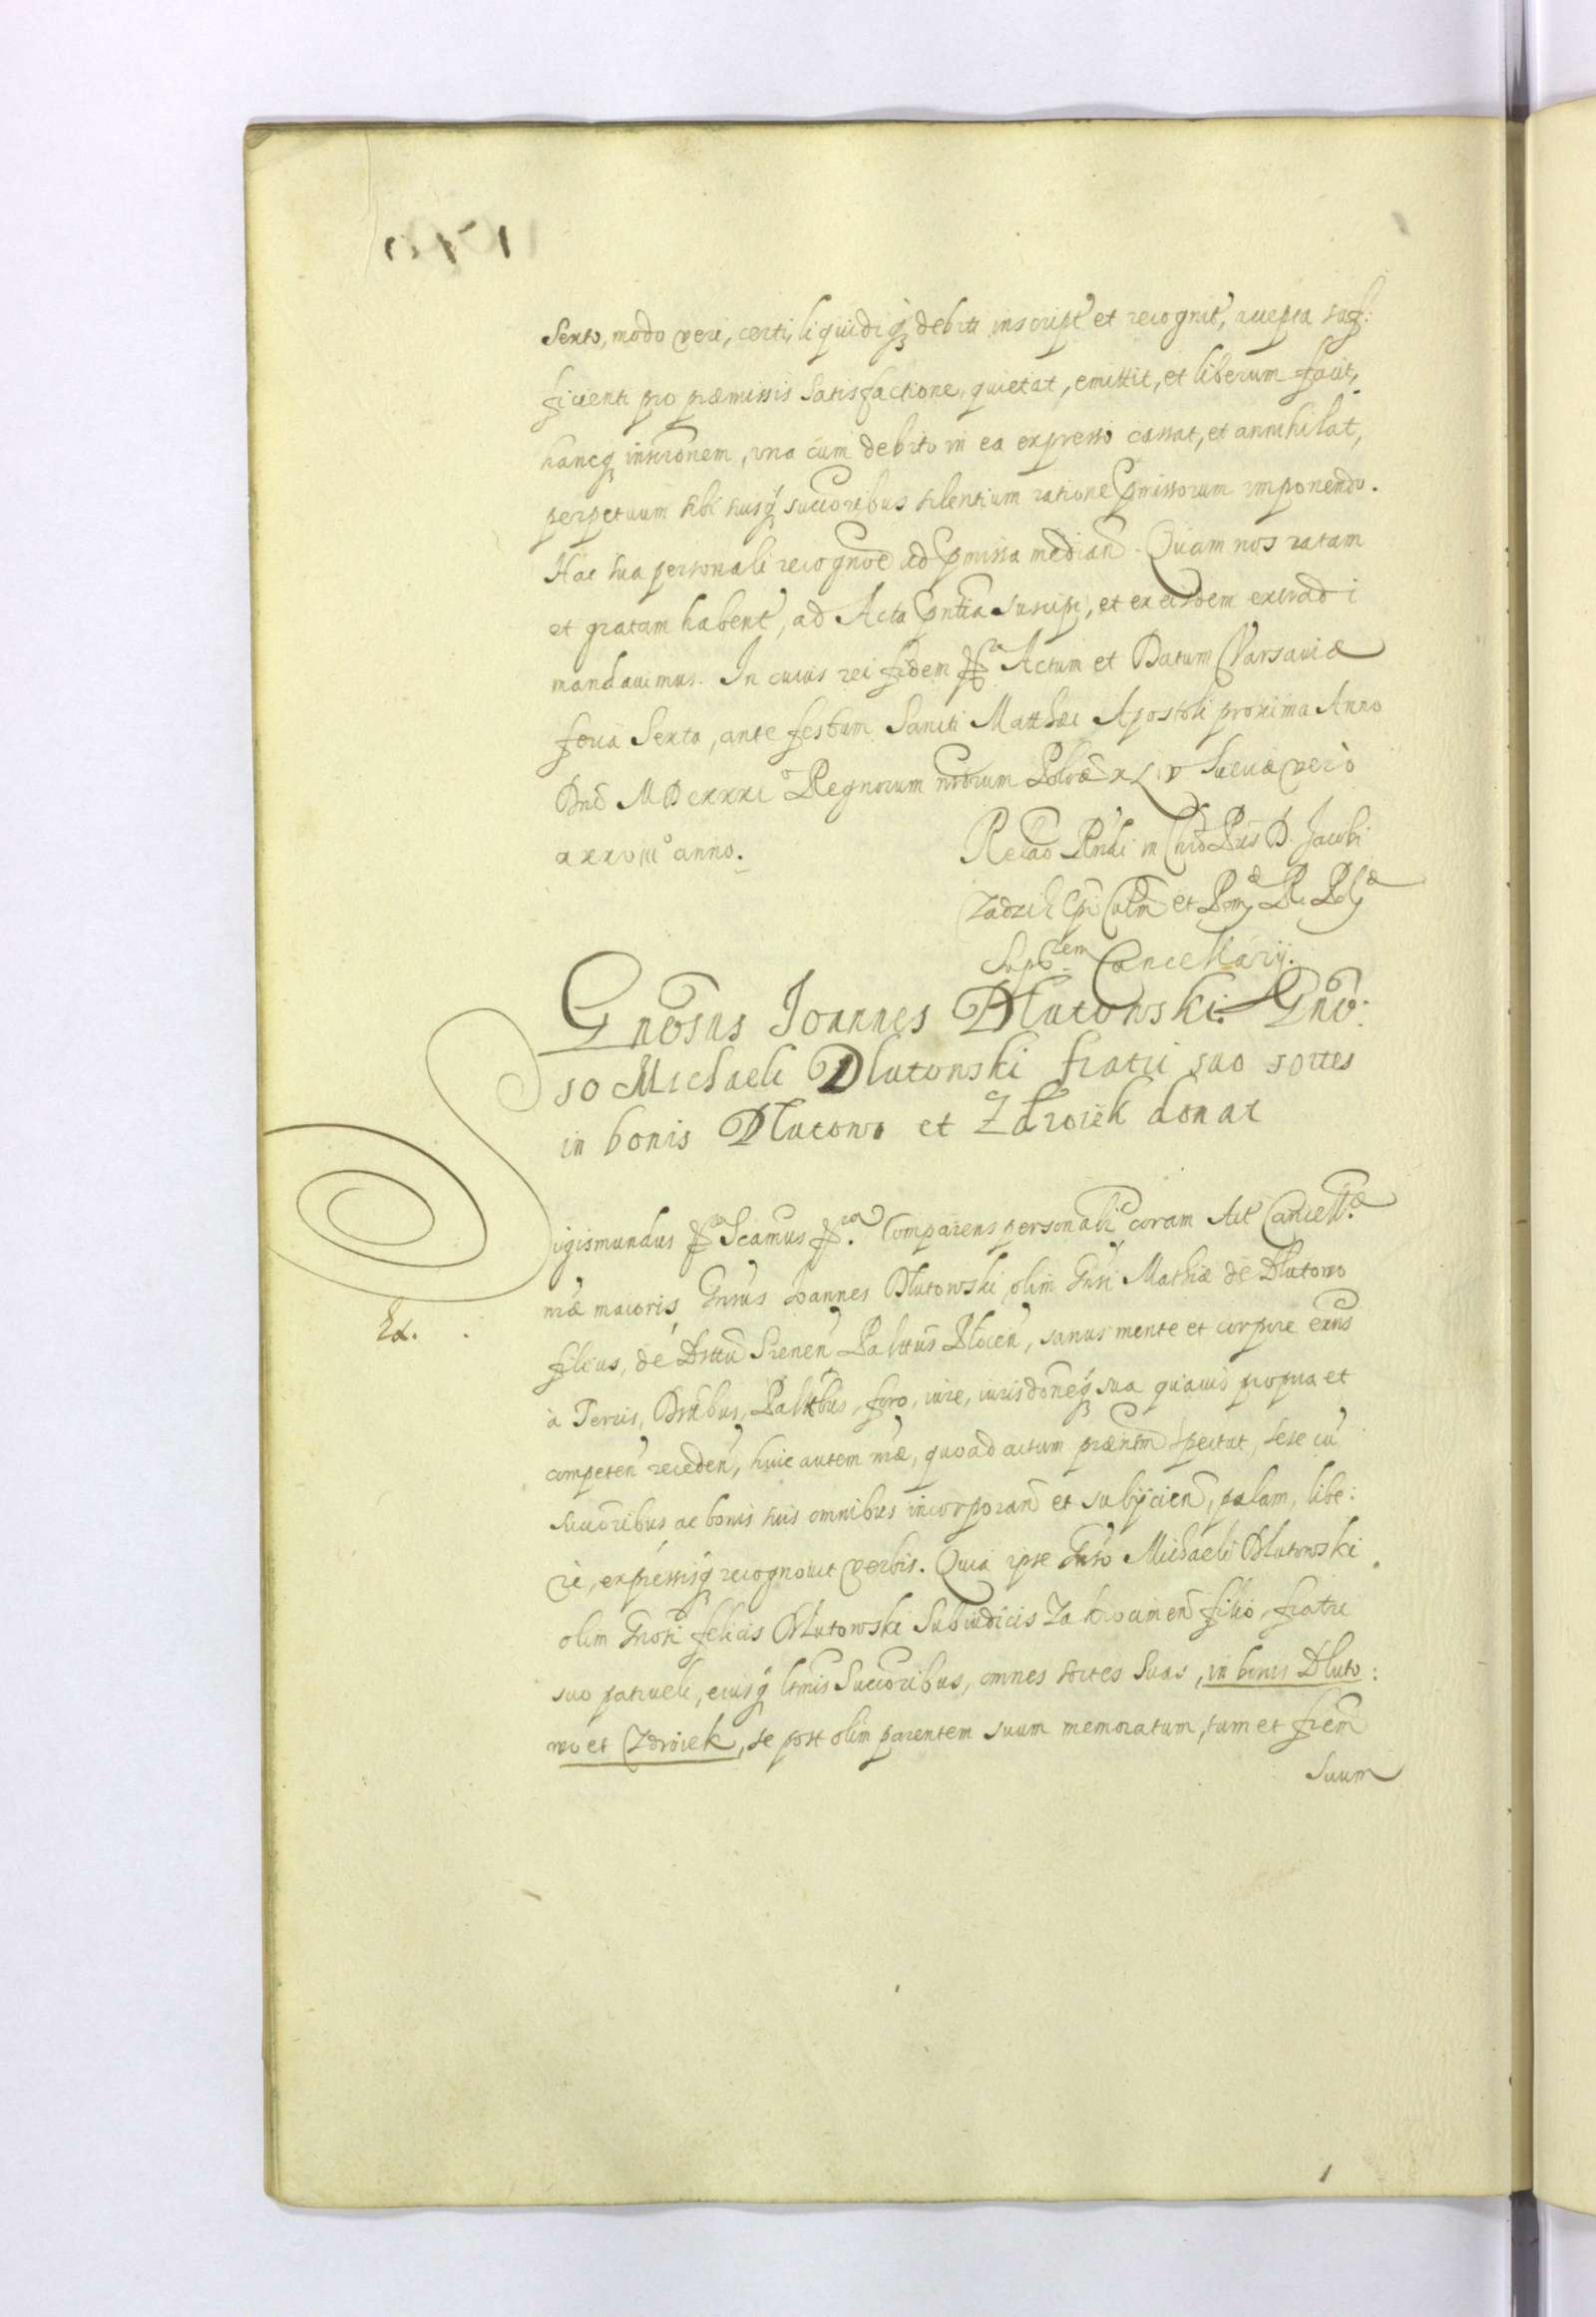 Sexto, modo veri, certi, liquidiq debiti inscript et recognit, accepta suf:
ficienti pro præmissis satisfactione, quietat, emittit, et liberum facit,
hancq inscrionem, vna cum debito in ea expresso cassat, et annihilat,
perpetuum sibi suisq succoribus silentium ratione pmissorum imponendo.
Hac sua personali recognoe ad pmissa median. Quam nos ratam
et gratam habent, ad Acta pntia suscipi, et ex eisdem extradi
mandauimus. In cuius rei fidem Actum et Datum Varsauiæ
feria Sexta, ante festum Sancti Matthæi Apostoli proxima Anno
Dni MDCXXXI Regnorum nrorum Poloæ XLIV Sueciæ verò
XXXVIII anno.
Relao Rndi in Chro Pris D. Jacobi
Zadzik Epi Culm et Pom R. Pol
Supr em Cancellarij.
Gnosus Joannes Dlutowski Gno:
so Michaeli Dlutowski fratri suo sortes
in bonis Dlutowo et Zdroiek donat
Sigismundus Scamus Comparens personalr coram Act Cancell
Ex.
nræ maioris, Gnsus Joannes Dlutowski, olim Gnsi Mathiæ de Dlutowo
filius, de Dsttu Srenen Palttus Plocen, sanus mente et corpore exns
à Terris, Dsttibus, Palttbus, foro, iure, iurisdoneq sua quauis propria et
competen receden, huic autem nræ, quoad actum præntem spectat, sese cu
succoribus ac bonis suis omnibus incorporan et subijcien, palam, libe:
re, expressisq recognouit verbis. Quia ipse Gnso Michaeli Dlutowski
olim Gnosi Felicis Dlutowski Subiudicis Zakrocimen filio, fratri
suo patrueli, eiusq ltmis Succoribus, omnes sortes suas, in bonis Dluto:
wo et Zdroiek, se post olim parentem suum memoratum, tum et frem
suum